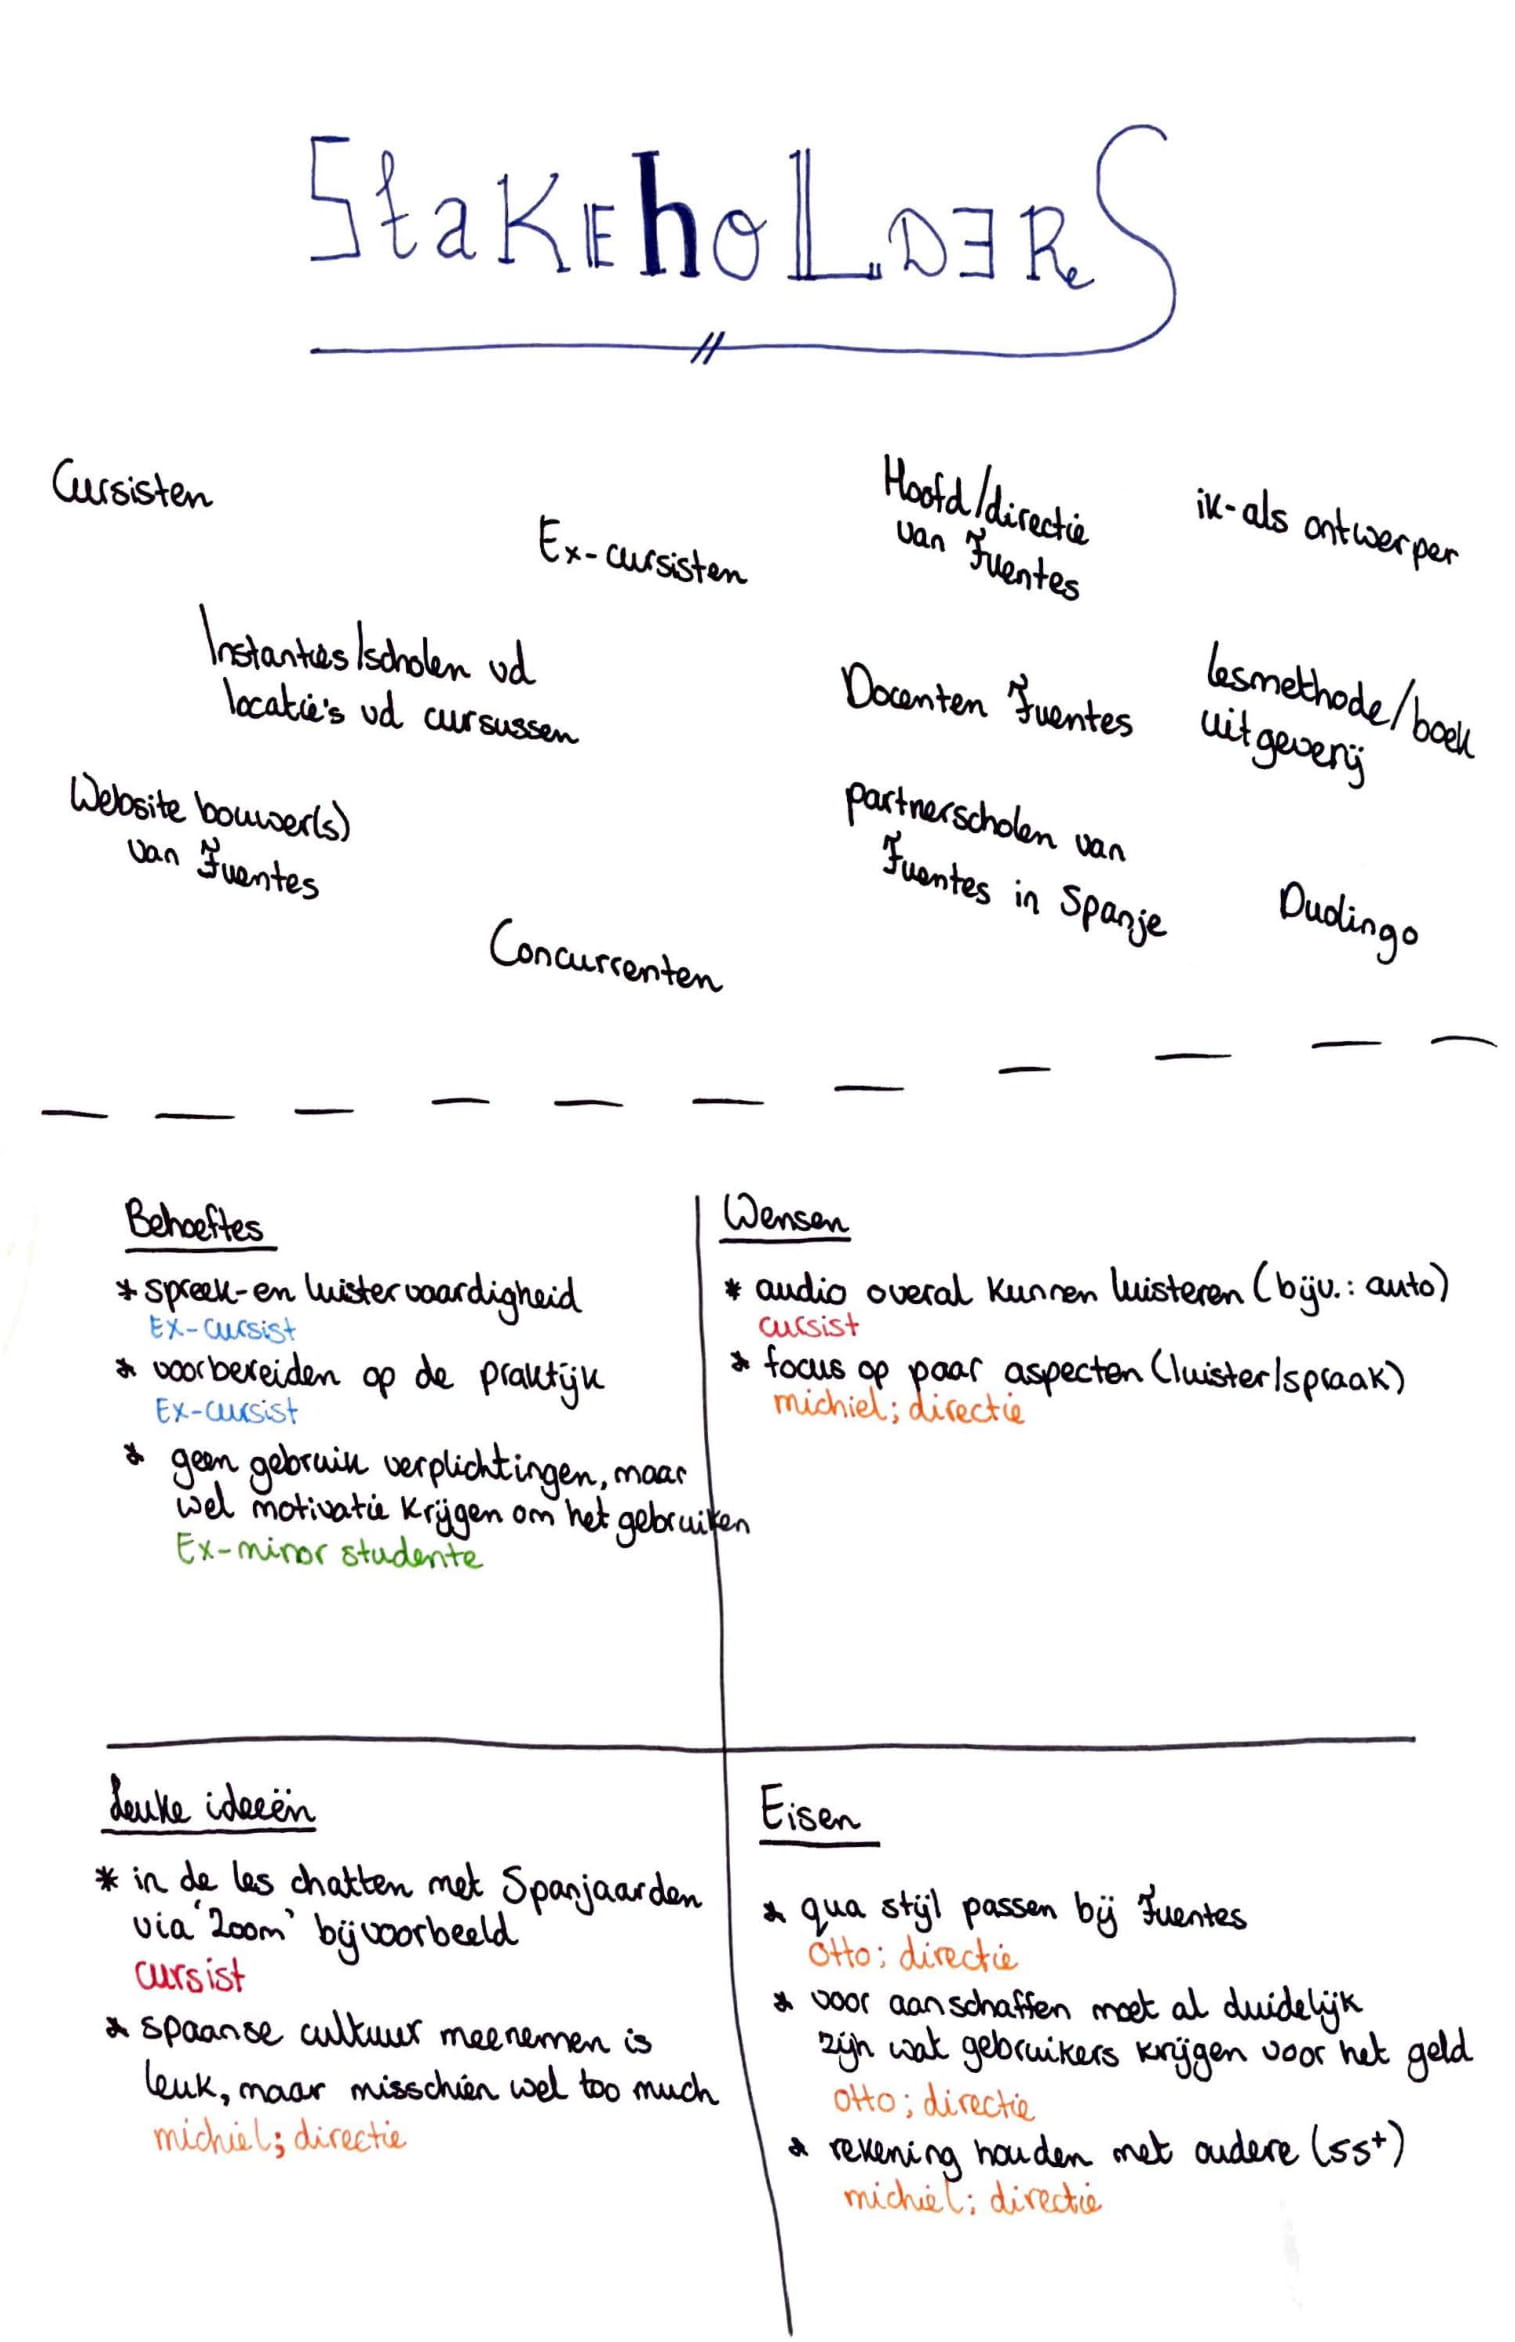 StakEhoLDERS
Cursisten
Ex-cursisten
Hoofd/directie
van Fuentes
ik-als ontwerper
Instanties/scholen vd
locatie's vd cursussen
Docenten Fuentes
lesmethode/boek
uitgeverij
Website bouwer(s)
van Fuentes
partnerscholen van
Fuentes in Spanje
Duolingo
Concurrenten
Behoeftes
* spreek-en luistervaardigheid
Ex-cursist
* voorbereiden op de praktijk
Ex-cursist
* geen gebruik verplichtingen, maar
wel motivatie krijgen om het gebruiken
Ex-minor studente
Wensen
* audio overal kunnen luisteren (bijv.: auto)
cursist
* focus op paar aspecten (luister/spraak)
michiel; directie
Leuke ideeën
* in de les chatten met Spanjaarden
via 'Zoom' bijvoorbeeld
cursist
* spaanse cultuur meenemen is
leuk, maar misschien wel too much
michiel; directie
Eisen
* qua stijl passen bij Fuentes
Otto; directie
* voor aanschaffen moet al duidelijk
zijn wat gebruikers krijgen voor het geld
Otto; directie
* rekening houden met oudere (55+)
michiel; directie